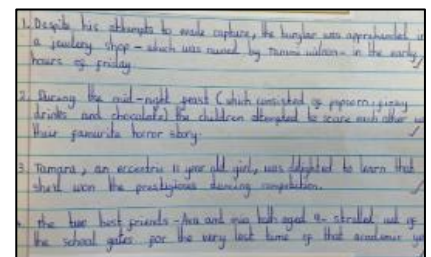 1. Despite his attempts to evade capture, the burglar was apprehended
a jewlery shop - which was owned by Tammi wilson - in the early
hours of friday
2. During the mid-night feast (which consisted of popcorn, fizzy
drinks and chocolate) the children attempted to scare each other
their favourite horror story.
3. Tamara, an eccentric 11 year old girl, was delighted to learn that
she'd won the prestigious dancing competition.
the two best friends - Ava and mia both aged 9 - strolled out of
the school gates for the very last time of that academic